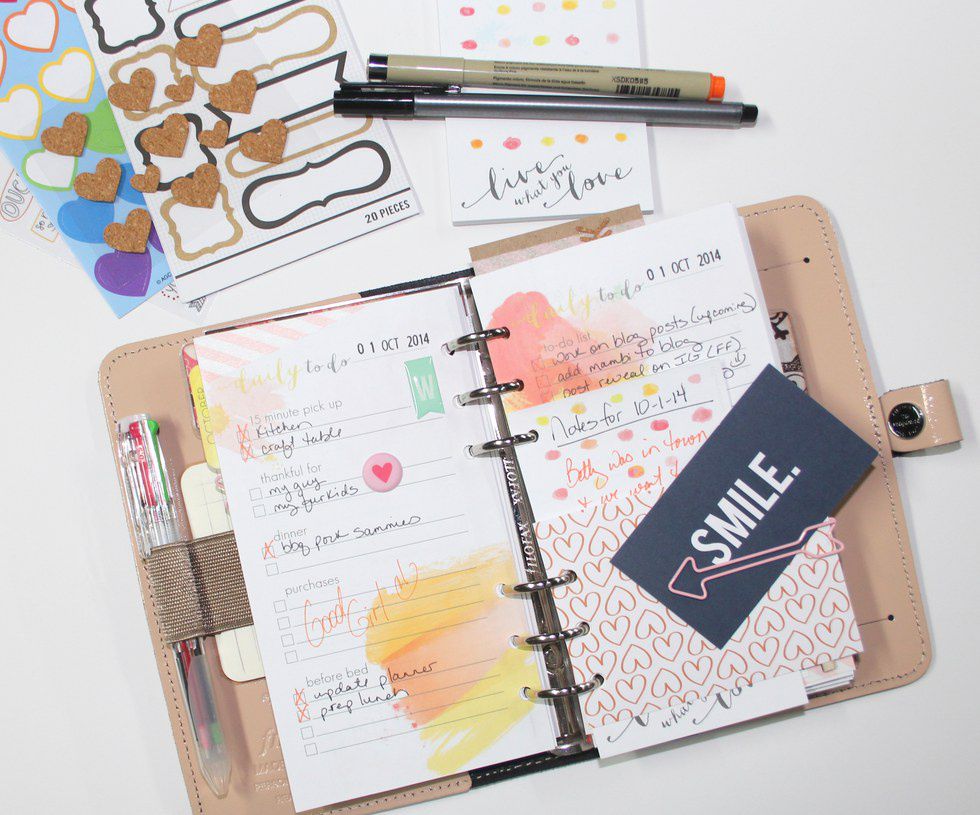 20 PIECES
XSDK0585
live
what you
love
daily to do
01 OCT 2014
W
OCTOBER
15 minute pick up
kitchen
craft table
thankful for
my guy
my furkids
dinner
bbq pork sammies
purchases
Good Girl
before bed
update planner
prep lunch
filofax
filofax
daily to do
01 OCT 2014
to-do list
work on blog posts (upcoming)
add mambi to blog
post reveal on IG (FF)
Notes for 10-1-14
Betty was in town
SMILE.
what